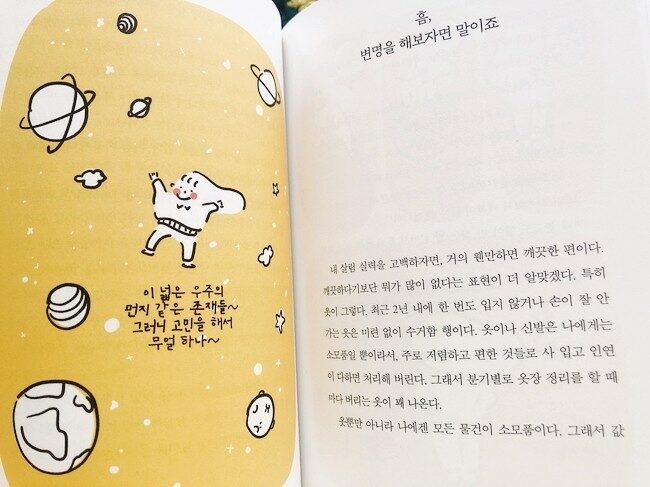 이 넓은 우주의
먼지 같은 존재들~
그러니 고민을 해서
무얼 하나~
흠,
변명을 해보자면 말이죠
내 살림 실력을 고백하자면, 거의 웬만하면 깨끗한 편이다.
깨끗하다기보단 뭐가 많이 없다는 표현이 더 알맞겠다. 특히
옷이 그렇다. 최근 2년 내에 한 번도 입지 않거나 손이 잘 안
가는 옷은 미련 없이 수거함 행이다. 옷이나 신발은 나에게는
소모품일 뿐이라서, 주로 저렴하고 편한 것들로 사 입고 인연
이 다하면 처리해 버린다. 그래서 분기별로 옷장 정리를 할 때
마다 버리는 옷이 꽤 나온다.
옷뿐만 아니라 나에겐 모든 물건이 소모품이다. 그래서 값